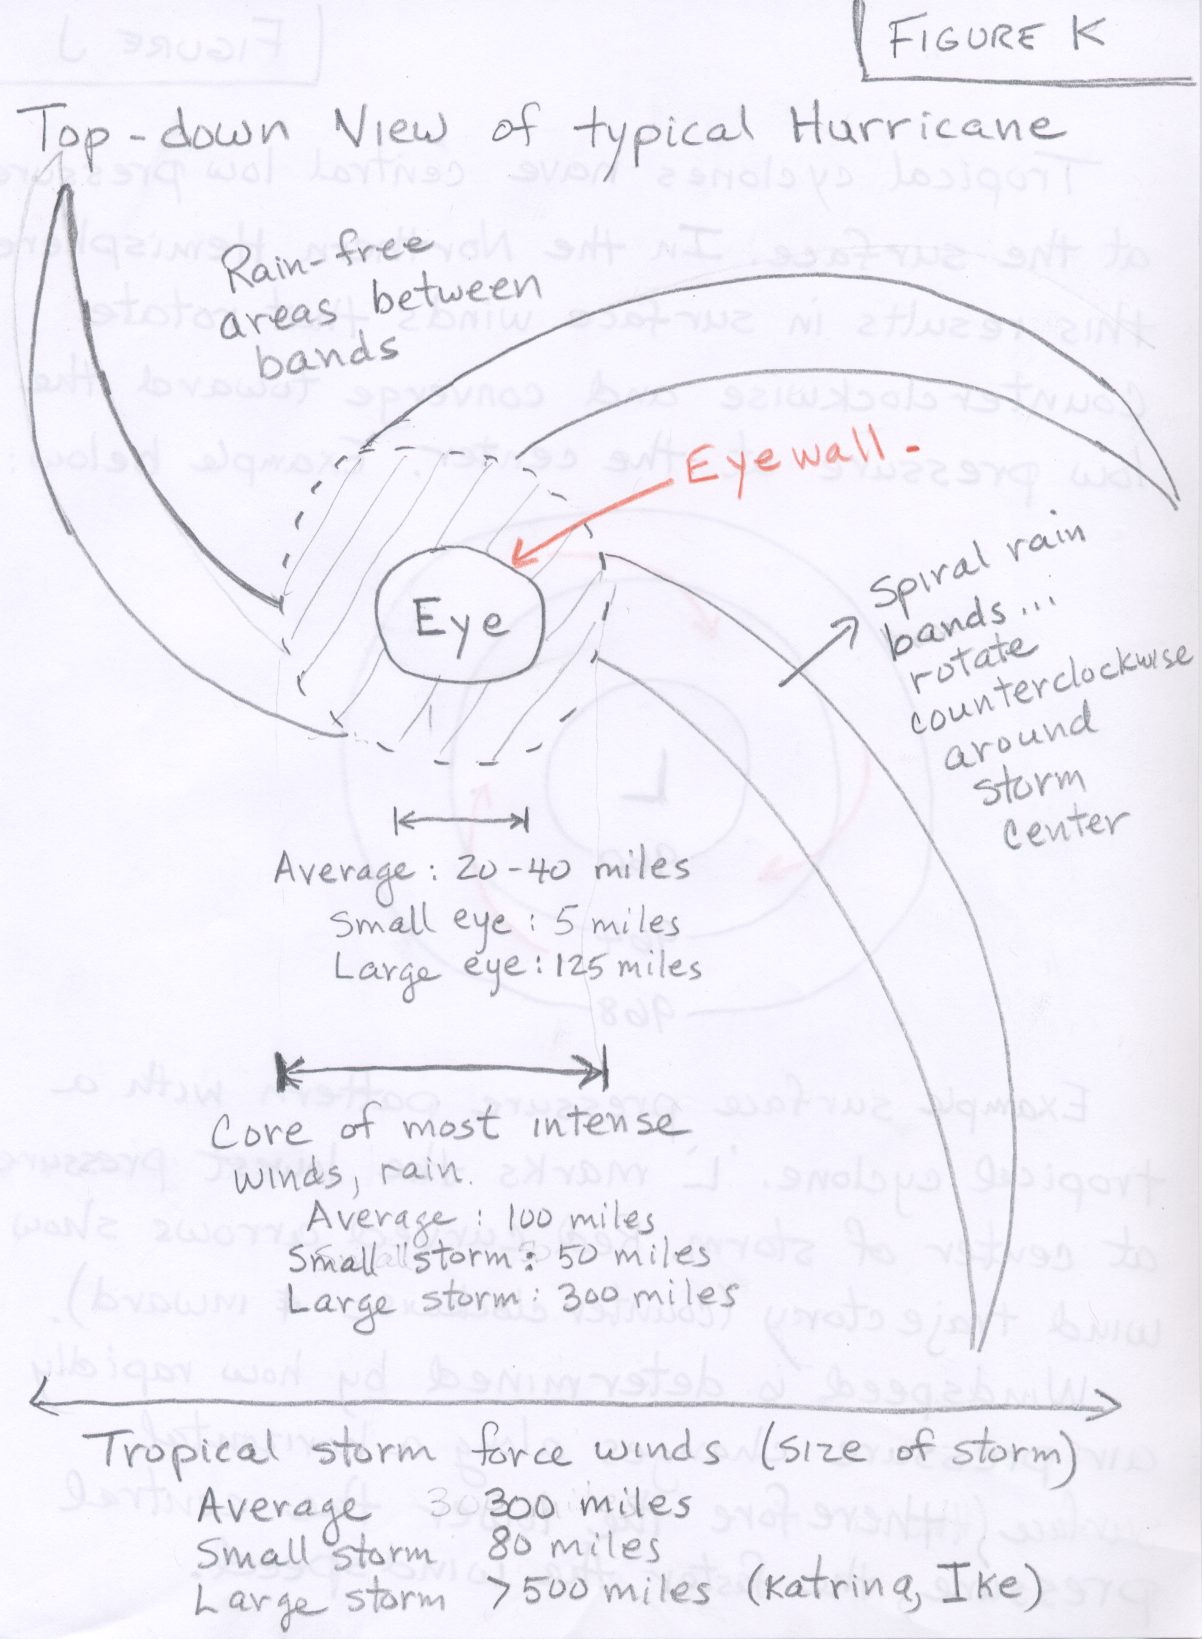 FIGURE K
Top-down View of typical Hurricane
Rain-free
areas between
bands
Eyewall
Eye
Spiral rain
bands...
rotate
counterclockwise
around
storm
center
Average: 20-40 miles
Small eye: 5 miles
Large eye: 125 miles
Core of most intense
winds, rain.
Average: 100 miles
Small storm: 50 miles
Large storm: 300 miles
Tropical storm force winds (size of storm)
Average 300 miles
Small storm 80 miles
Large storm >500 miles (Katrina, Ike)